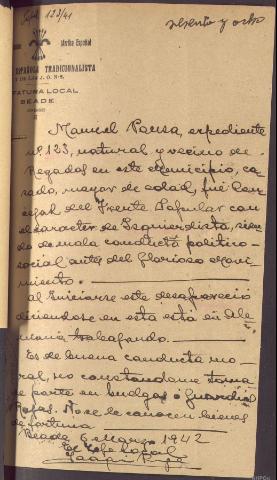 123/41
sesenta y ocho
Arriba Español
ESPAÑOLA TRADICIONALISTA
Y DE LAS J. O. N-S.
FATURA LOCAL
BEADE
Manuel Pousa, expediente
nº 123, natural y vecino de
Regados en este Municipio, ca-
sado, mayor de edad, fué Con-
cejal del Frente Popular con
el caracter de Izquierdista, sien-
do de mala conducta politico-
social antes del Glorioso Movi-
miento.
al iniciarse este desaparecio
diciendose en esta está en Ale-
mania trabajando.
Es de buena conducta mo-
ral, no constandome toma-
se parte en huelgas ó guardias
Rojas. No se le conocen bienes
de fortuna
Beade 6 Marzo 1942
El Jefe Local